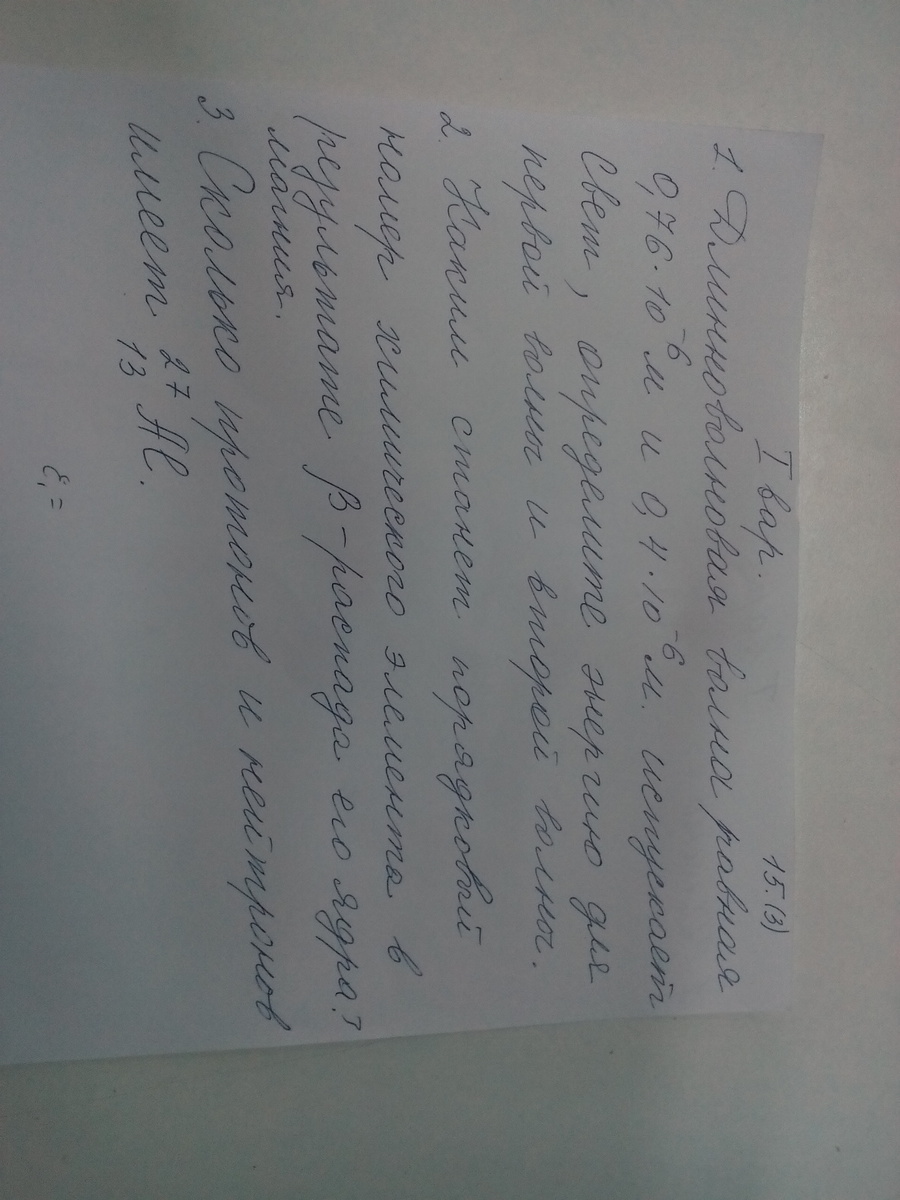 I вар.
15.(3)
1. Длинноволновая волна равная
0,76·10⁻⁶ м и 0,4·10⁻⁶ м. испускает
свет, определите энергию для
первой волны и второй волны.
2. Каким станет порядковый
номер химического элемента в
результате β-распада его ядра?
(магния.
3. Сколько протонов и нейтронов
имеет ²⁷₁₃Al.
ε₁ =